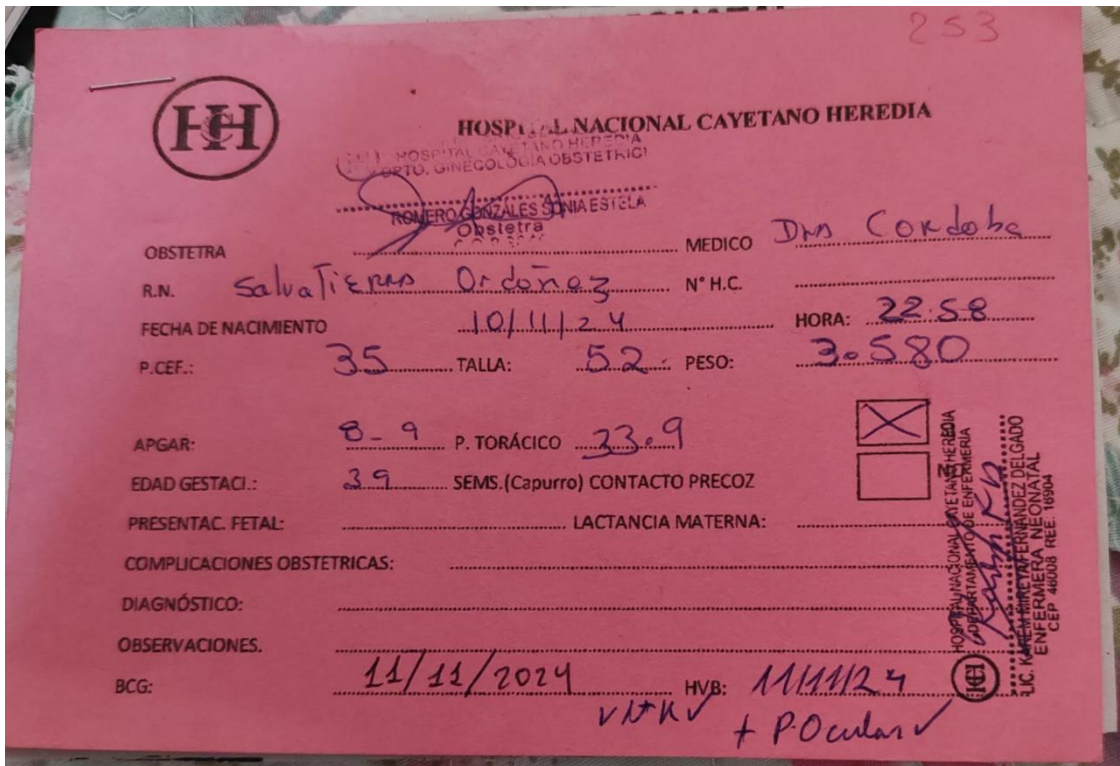 253
HCH
HOSPITAL NACIONAL CAYETANO HEREDIA
HOSPITAL CAYETANO HEREDIA
DPTO. GINECOLOGIA OBSTETRICI
ROMERO GONZALES SONIA ESTELA
Obstetra
OBSTETRA MEDICO Dra Cordoba
R.N. Salvatierra Ordoñez N° H.C.
FECHA DE NACIMIENTO 10/11/24 HORA: 22:58
P.CEF.: 35 TALLA: 52. PESO: 3.580
APGAR: 8-9 P. TORÁCICO 33.9
EDAD GESTACI.: 39 SEMS.(Capurro) CONTACTO PRECOZ X
PRESENTAC. FETAL: LACTANCIA MATERNA:
COMPLICACIONES OBSTETRICAS:
DIAGNÓSTICO:
OBSERVACIONES.
BCG: 11/11/2024 HVB: 11/11/24
+ P.Ocular ✓
HOSPITAL NACIONAL CAYETANO HEREDIA
DEPARTAMENTO DE ENFERMERIA
LIC. KAREM MIREYA FERNANDEZ DELGADO
ENFERMERA NEONATAL
CEP 46008 REE. 16904